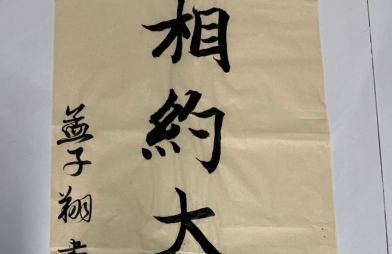 相約大
孟子翔書